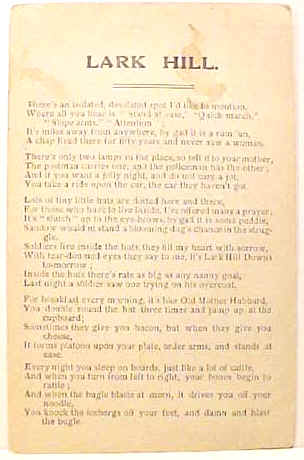 LARK HILL.
There's an isolated, desolated spot I'd like to mention,
Where all you hear is "Stand at ease," "Quick march,"
"Slope arms," "Attention"
It's miles away from anywhere, by gad it is a rum 'un,
A chap lived there for fifty years and never saw a woman.
There's only two lamps in the place, so tell it to your mother,
The postman carries one, and the policeman has the other;
And if you want a jolly night, and do not care a jot,
You take a ride upon the car, the car they haven't got.
Lots of tiny little huts are dotted here and there,
For those who have to live inside, I've offered many a prayer;
It's "slutch" up to the eye-brows, by gad it is some puddle,
Sandow would'nt stand a blooming dog's chance in the struggle.
Soldiers fire inside the huts, they fill my heart with sorrow,
With tear-dimmed eyes they say to me, it's Lark Hill Downs
to-morrow;
Inside the huts there's rats as big as any nanny goat,
Last night a soldier saw one trying on his overcoat.
For breakfast every morning, it's like Old Mother Hubbard,
You double round the hut three times and jump up at the
cupboard;
Sometimes they give you bacon, but when they give you
cheese,
It forms platoons upon your plate, order arms, and stands at
ease.
Every night you sleep on boards, just like a lot of cattle,
And when you turn from left to right, your bones begin to
rattle;
And when the bugle blasts at morn, it drives you off your
noodle,
You knock the icebergs off your feet, and damn and blast
the bugle.